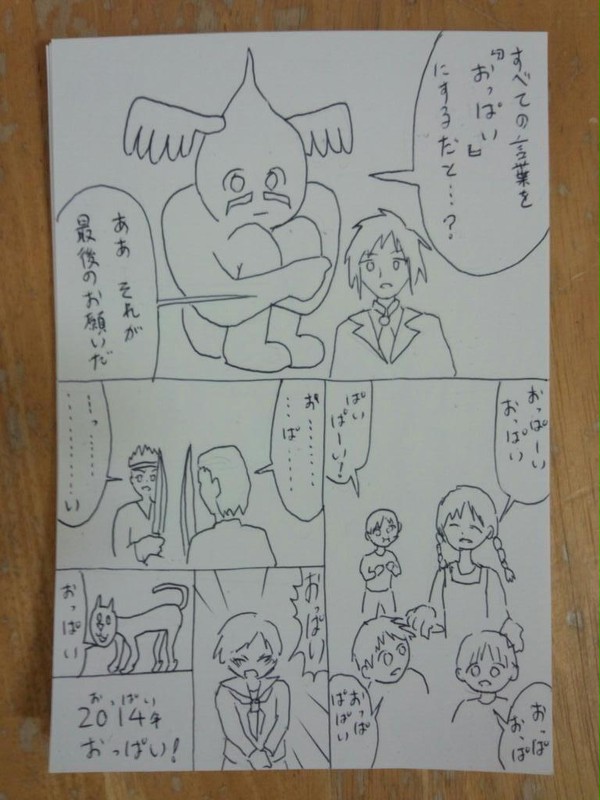 すべての言葉を
『おっぱい』
にするだと…?
ああ それが
最後のお願いだ
おっぱーい
おっぱい
ぱい
ぱーい!
おっぱ
おっぱ
おっぱ
ぱぱい
お………
…ぱ………
…っ………
…………い
おっぱい
おっぱい
おっぱい
2014年
おっぱい!